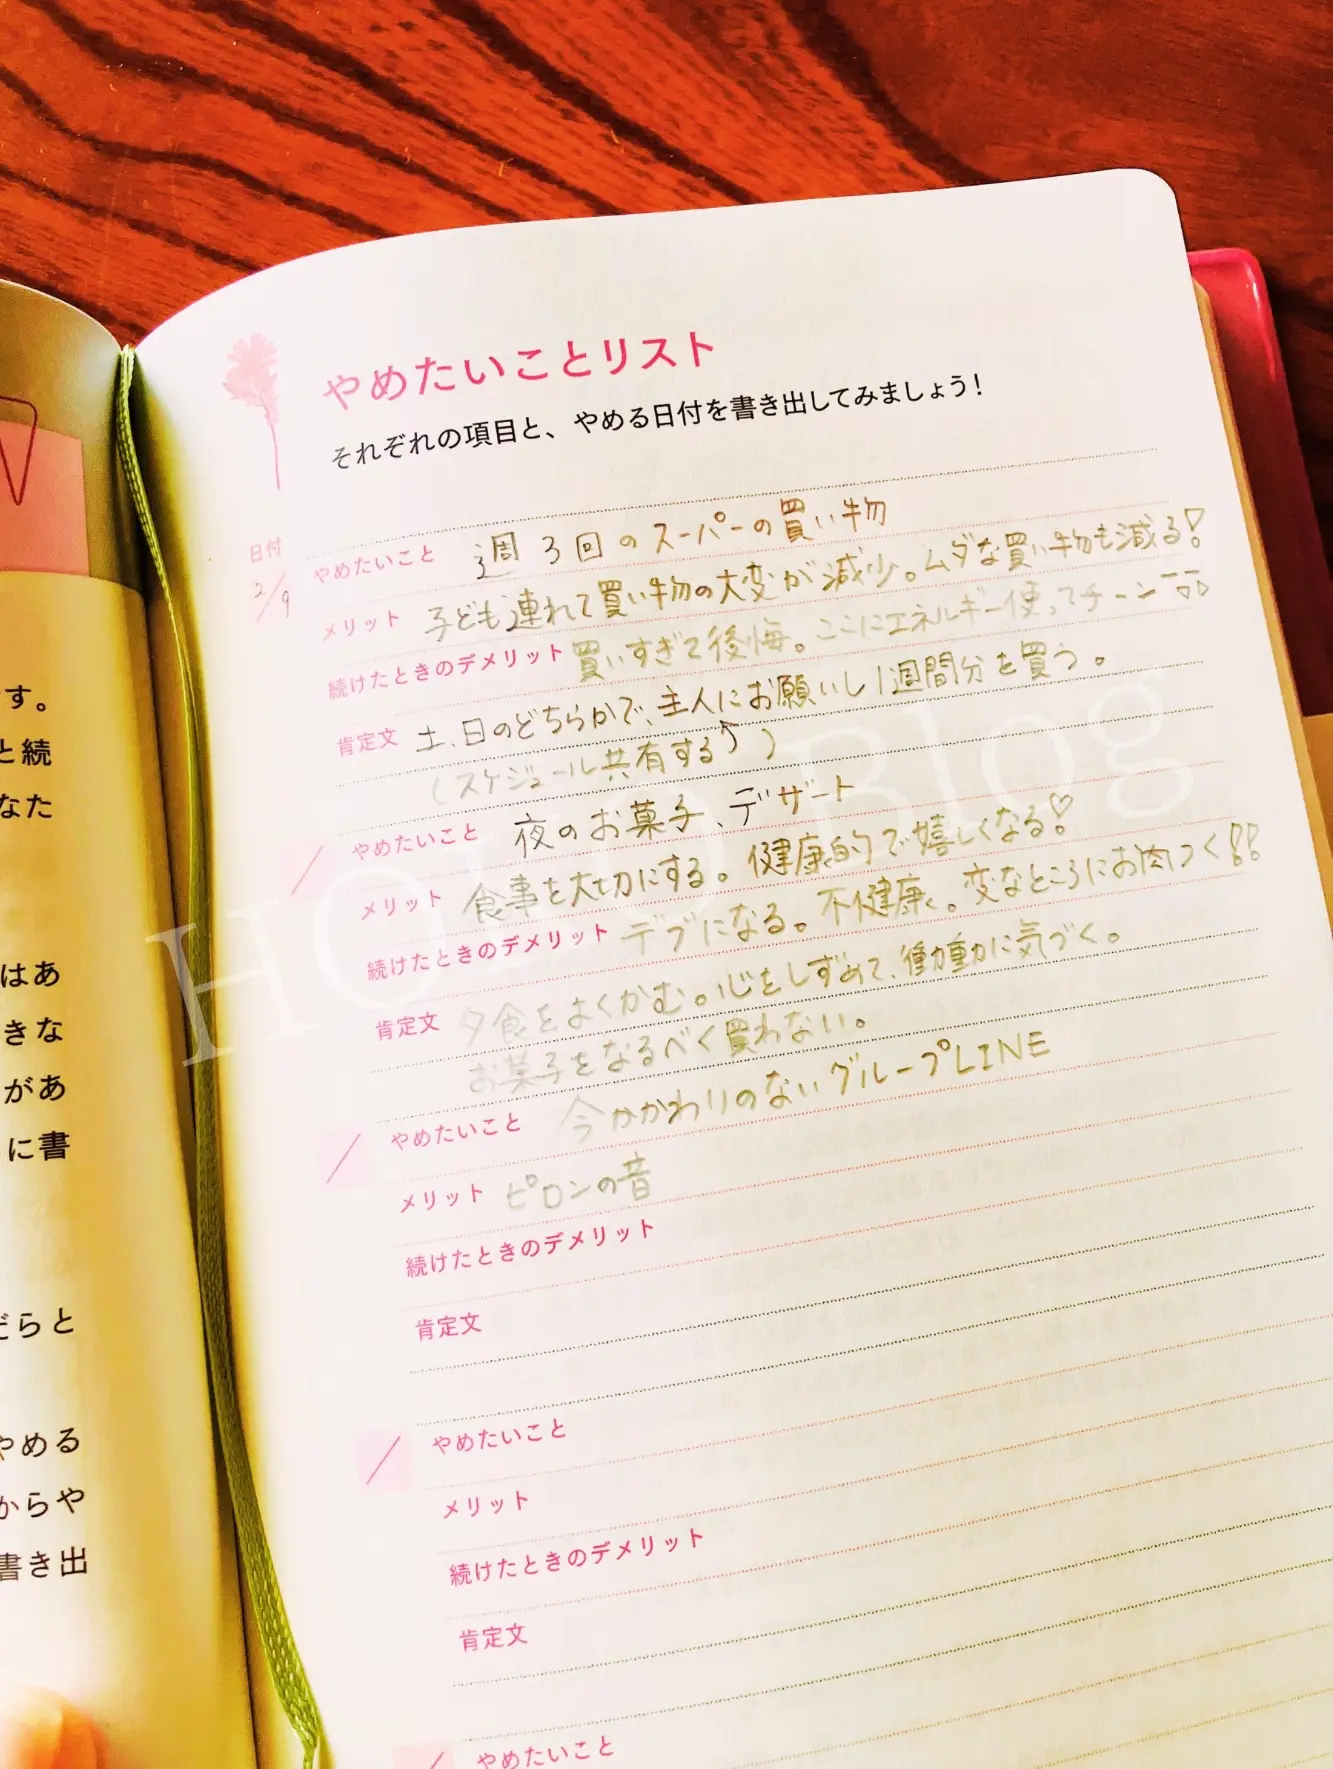 す。
と続
なた
はあ
きな
があ
に書
だらと
やめる
からや
書き出
やめたいことリスト
それぞれの項目と、やめる日付を書き出してみましょう!
日付
2/9
やめたいこと 週3回のスーパーの買い物
メリット 子ども連れて買い物の大変が減少。ムダな買い物も減る!
続けたときのデメリット 買いすぎて後悔。ここにエネルギー使ってチーン
肯定文 土、日のどちらかで、主人にお願いし1週間分を買う。
(スケジュール共有する)
/ やめたいこと 夜のお菓子、デザート
メリット 食事を大切にする。健康的で嬉しくなる♡
続けたときのデメリット デブになる。不健康。変なところにお肉つく!!
肯定文 夕食をよくかむ。心をしずめて、衝動に気づく。
お菓子をなるべく買わない。
/ やめたいこと 今かかわりのないグループLINE
メリット ピロンの音
続けたときのデメリット
肯定文
/ やめたいこと
メリット
続けたときのデメリット
肯定文
/ やめたいこと
Blog